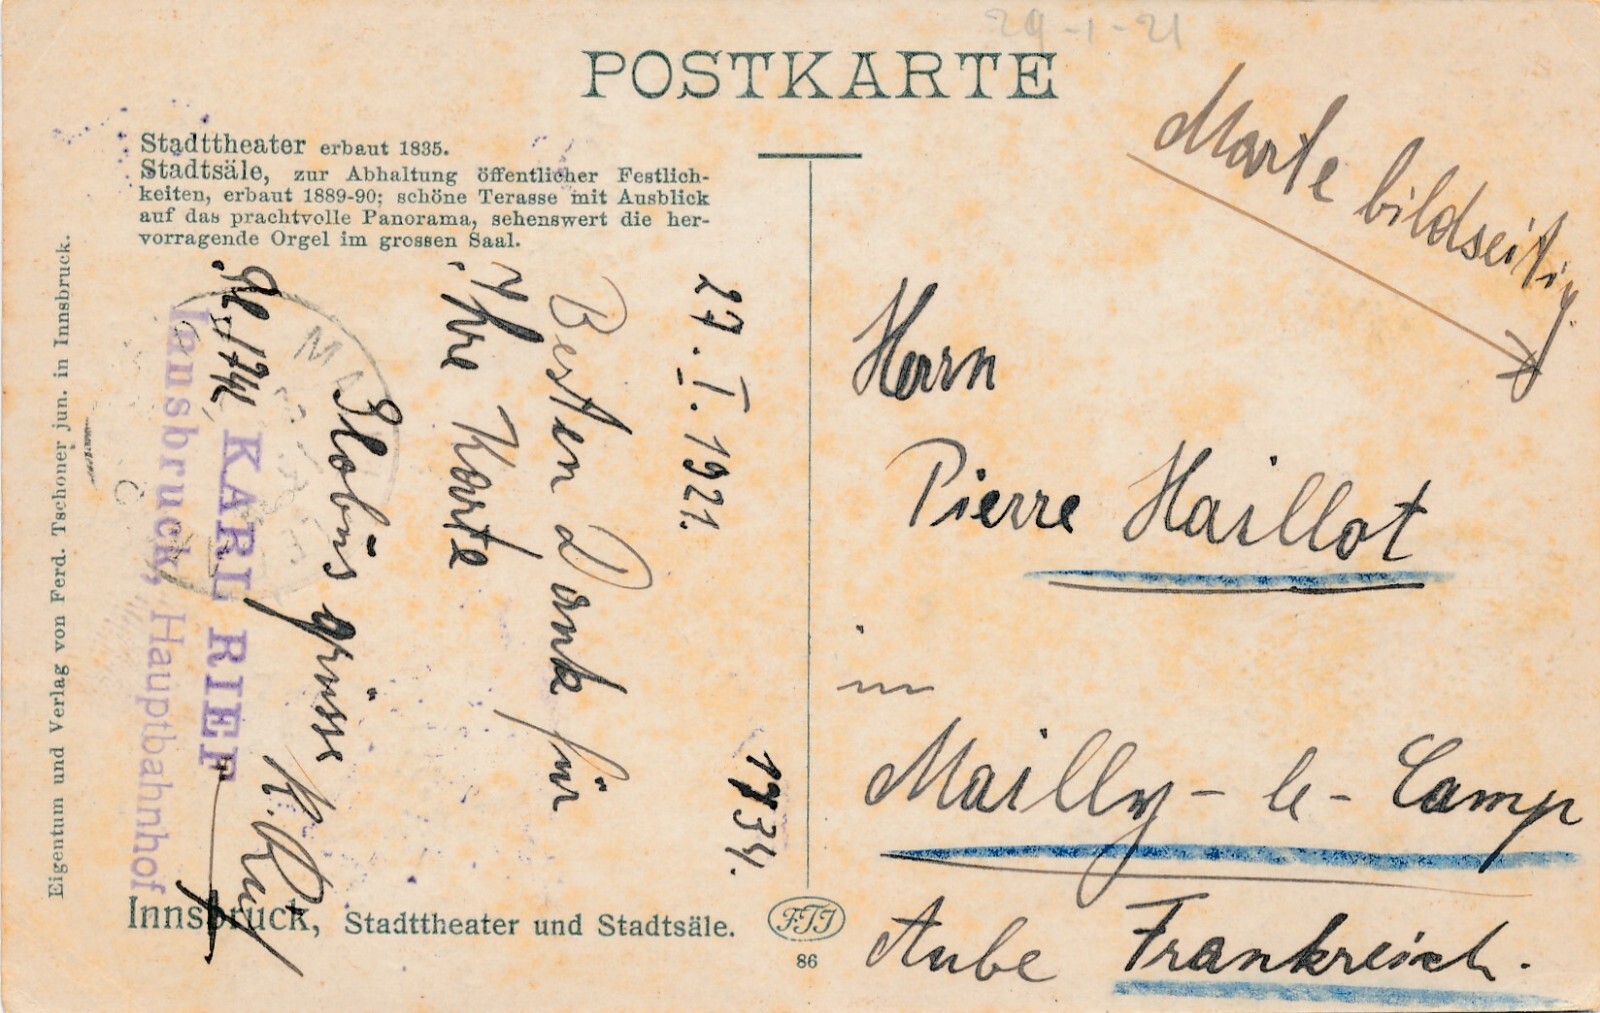 29-1-21
POSTKARTE
Marke bildseitig
Stadttheater erbaut 1835.
Stadtsäle, zur Abhaltung öffentlicher Festlich-
keiten, erbaut 1889-90; schöne Terasse mit Ausblick
auf das prachtvolle Panorama, sehenswert die her-
vorragende Orgel im grossen Saal.
27. I. 1921.
1734.
Besten Dank für
Ihre Karte
Globus grüsse
KARL RIEF
Innsbruck, Hauptbahnhof
Eigentum und Verlag von Ferd. Tschoner jun. in Innsbruck.
Innsbruck, Stadttheater und Stadtsäle.
FTJ
86
Herrn
Pierre Haillot
in
Mailly-le-Camp
Aube Frankreich.